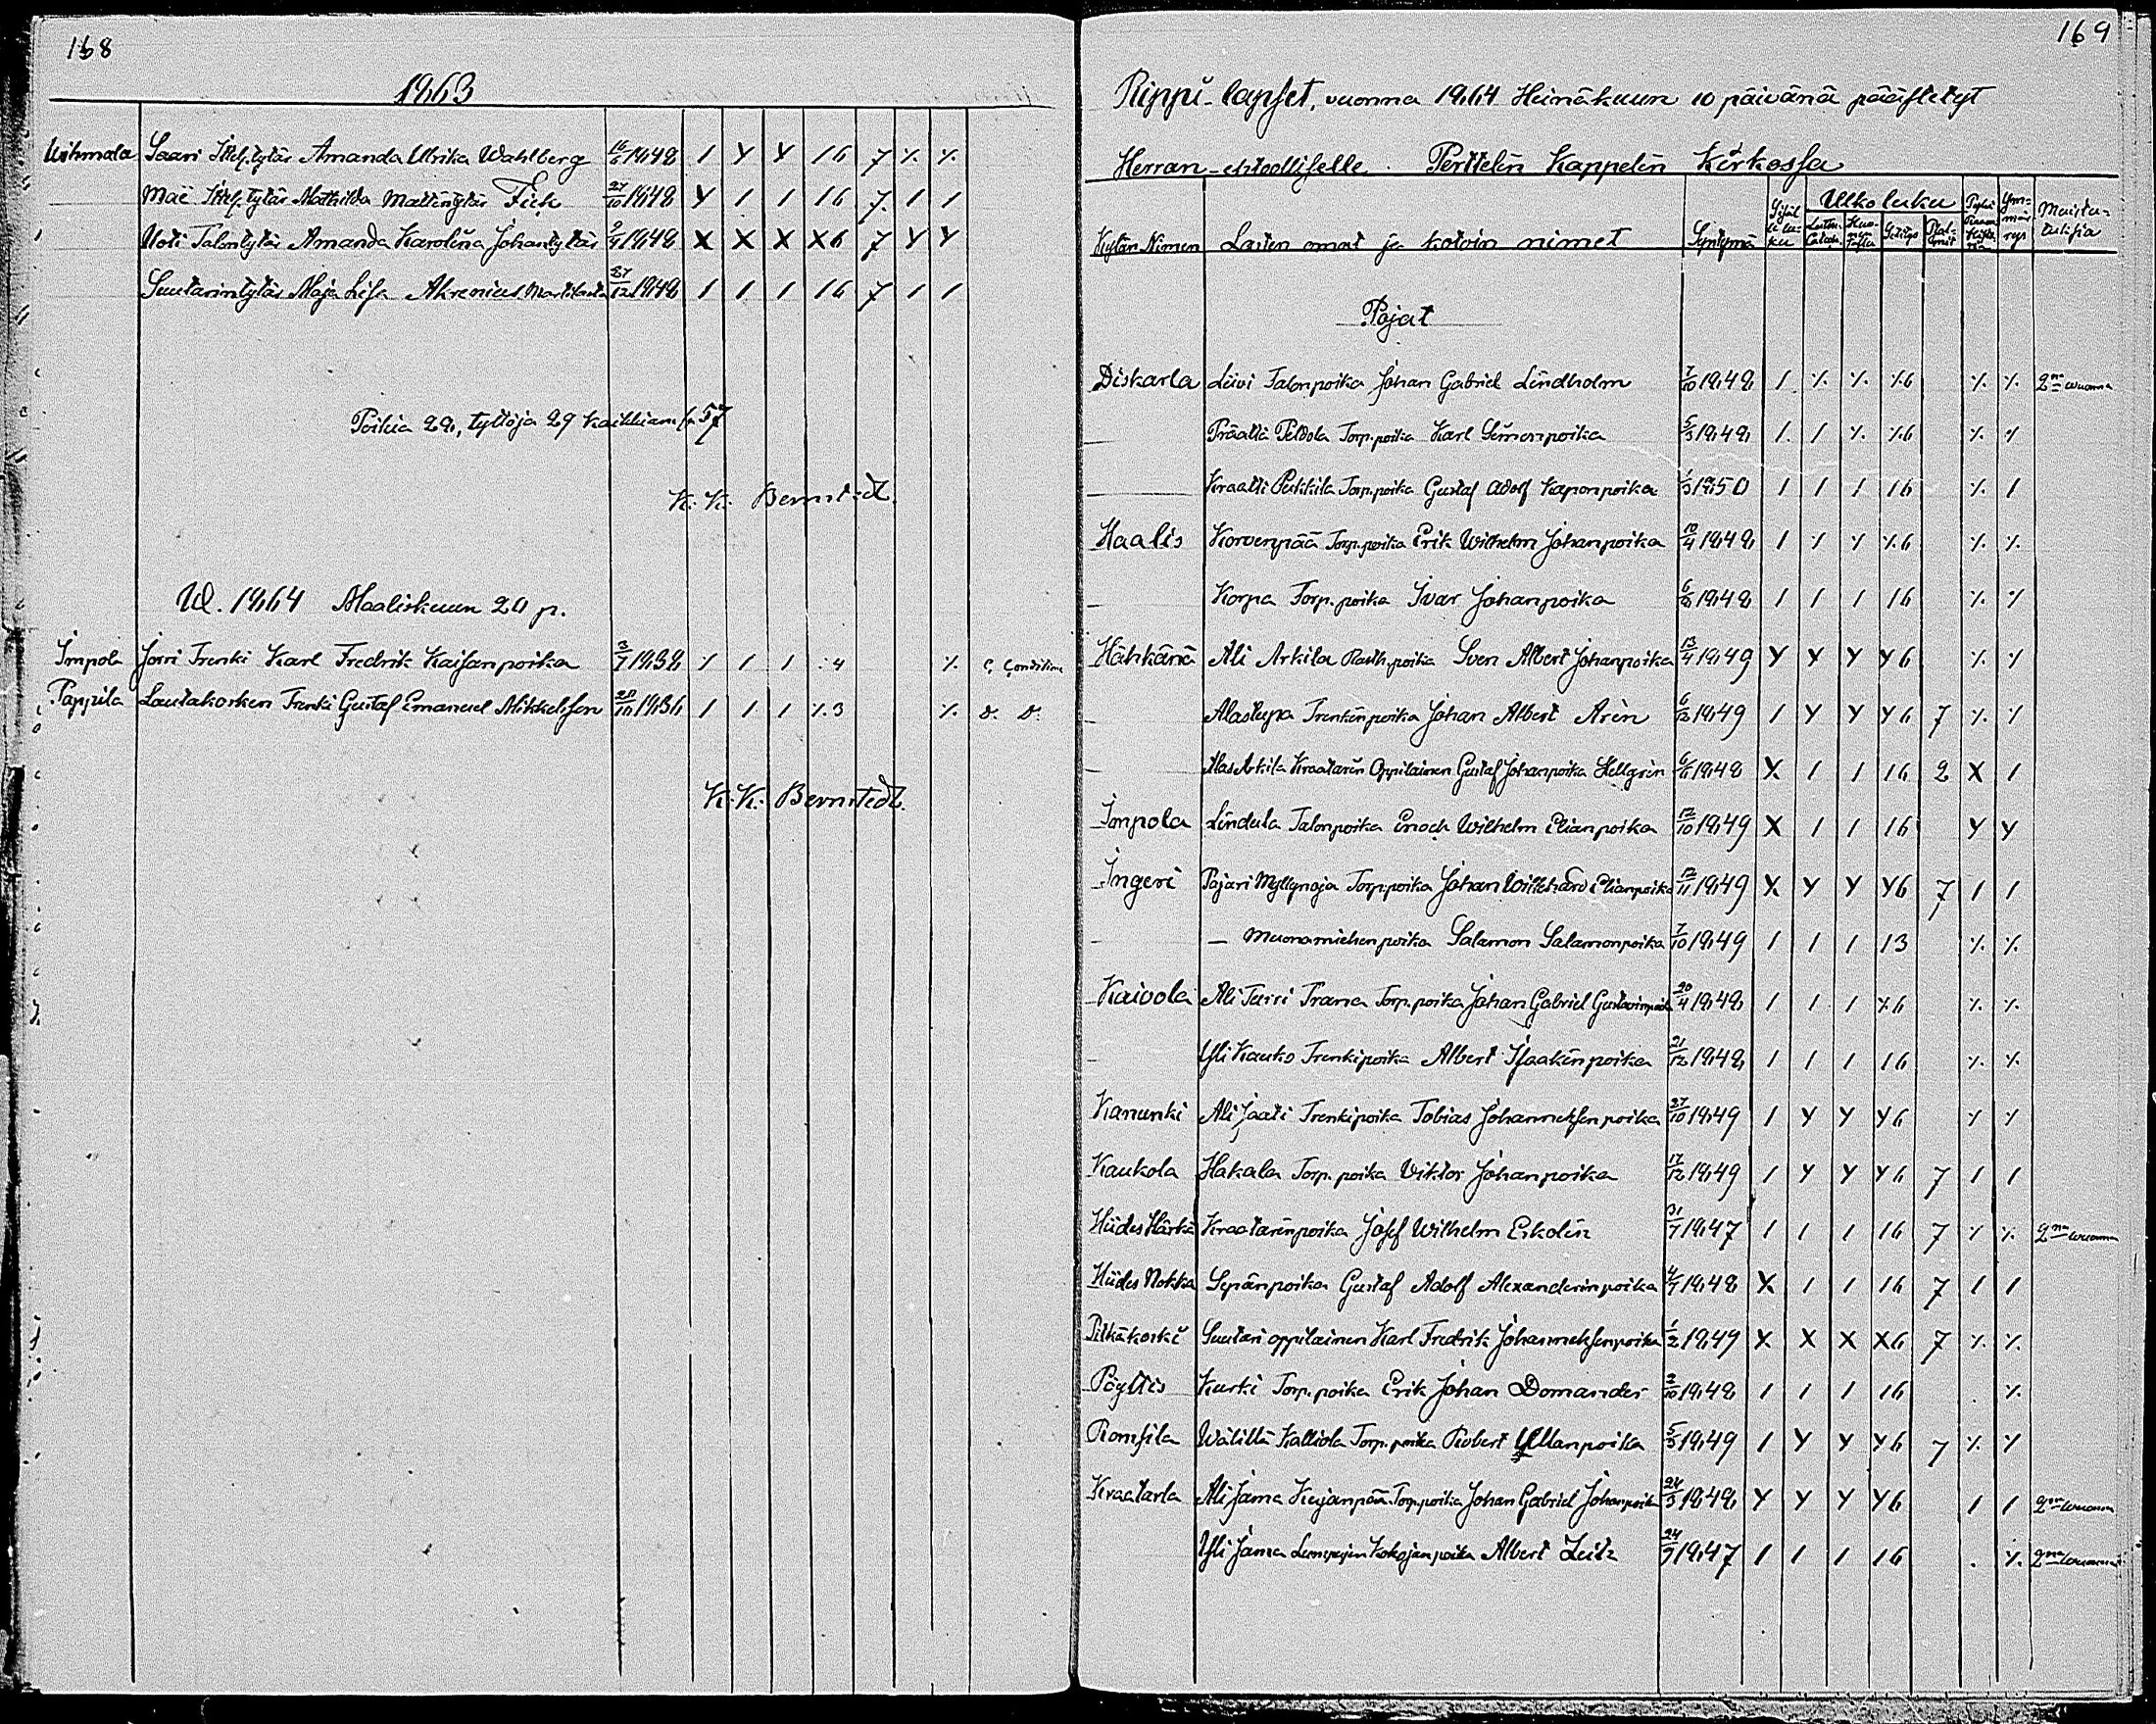 168
1863
Uskmala Saari Itlel. tytär Amanda Ulrika Wahlberg 16/5 1848 / Y Y 16 7 ٪ ٪
Mäe Itlel. tytär Mathilda Mattintytär Fick 27/10 1848 Y / / 16 7 / /
Uoti Talontytär Amanda Karolina Johantytär 9/9 1848 X X X X6 7 Y Y
Suutarintytär Maja Lisa Akrenius 27/12 1848 / / / 16 7 / /
Poikia 28, tyttöjä 29 Kaikkiansa 57
K. K. Bernstedt.
W. 1864 Maaliskuun 20 p.
Impola Jorri Trenki Karl Fredrik Kaisanpoika 3/7 1838 ٪ / / ٪4 ٪
Pappila Lautakosken Trenki Gustaf Emanuel Mikkelsson 20/10 1836 / / / ٪3 ٪ D. D.
K. K. Bernstedt.
169
Rippi-lapset, vuonna 1864 Heinäkuun 10 päivänä päästetyt
Herran-ehtoolliselle Perttelin Kappelin Kirkossa
Kylän Nimen Lasten omat ja kotoin nimet Syntymä Sisällä luku Ulko luku Ymmärrys Muistutuksia
Pojat
Diskarla Liivi Talonpoika Johan Gabriel Lindholm 7/10 1848 / ٪ ٪ ٪6 ٪ ٪ 2na wuonna
Präätlä Peltola Torp. poika Karl Simonpoika 5/3 1848 / / ٪ ٪6 ٪ ٪
Kraatti Pukkila Torp. poika Gustaf Adolf Kaponpoika 1/3 1850 / / / 16 ٪ /
Haalis Korvenpää Torp. poika Erik Wilhelm Johanpoika 10/4 1848 / ٪ ٪ ٪6 ٪ ٪
Korpa Torp. poika Ivar Johanpoika 6/8 1848 / / / 16 ٪ ٪
Hähkänä Ali Arkila Rusth. poika Sven Albert Johanpoika 13/4 1849 Y Y Y Y6 ٪ ٪
Alastupa Trenkinpoika Johan Albert Arén 6/12 1849 / Y Y Y6 7 ٪ ٪
Alas Arkila Kraatarin Oppilainen Gustaf Johanpoika Hellgrén 6/6 1848 X / / 16 2 X /
Impola Lindula Talonpoika Enoch Wilhelm Elianpoika 12/10 1849 X / / 16 Y Y
Ingeri Pajari Myllynoja Torp. poika Johan Willehard Elianpoika 12/11 1849 X Y Y Y6 7 / /
— Muonamiehenpoika Salamon Salamonpoika 7/10 1849 / / / 13 ٪ ٪
Kaivola Ali Turri Trana Torp. poika Johan Gabriel Gustavinpoika 20/4 1848 / / / ٪6 ٪ ٪
Yli Kauko Trenkipoika Albert Isaakinpoika 21/12 1848 / / / 16 ٪ ٪
Kanunki Ali Jaati Trenkipoika Tobias Johanneksenpoika 27/10 1849 / Y Y Y6 ٪ ٪
Kaukola Hakala Torp. poika Viktor Johanpoika 17/12 1849 / Y Y Y6 7 / /
Hiides Härkä Kraatarinpoika Josef Wilhelm Eskolin 31/7 1847 / / / 16 7 ٪ ٪ 2na wuonna
Hiides Nokka Sepänpoika Gustaf Adolf Alexanderinpoika 4/7 1848 X / / 16 7 / /
Pitkäkoski Suutari oppilainen Karl Fredrik Johanneksenpoika 1/2 1849 X X X X6 7 ٪ ٪
Pöyltis Kurki Torp. poika Erik Johan Domander 2/10 1848 / / / 16 ٪
Romsila Wälillä Kalliola Torp. poika Robert Yllanpoika 5/3 1849 / Y Y Y6 7 ٪ ٪
Kraatarla Ali Jama Kujanpää Torp. poika Johan Gabriel Johanpoika 24/3 1848 Y Y Y Y6 / / 2na wuonna
Yli Jama Lumpujen Kokojanpoika Albert Zeitz 24/9 1847 / / / 16 . ٪ 2na wuonna